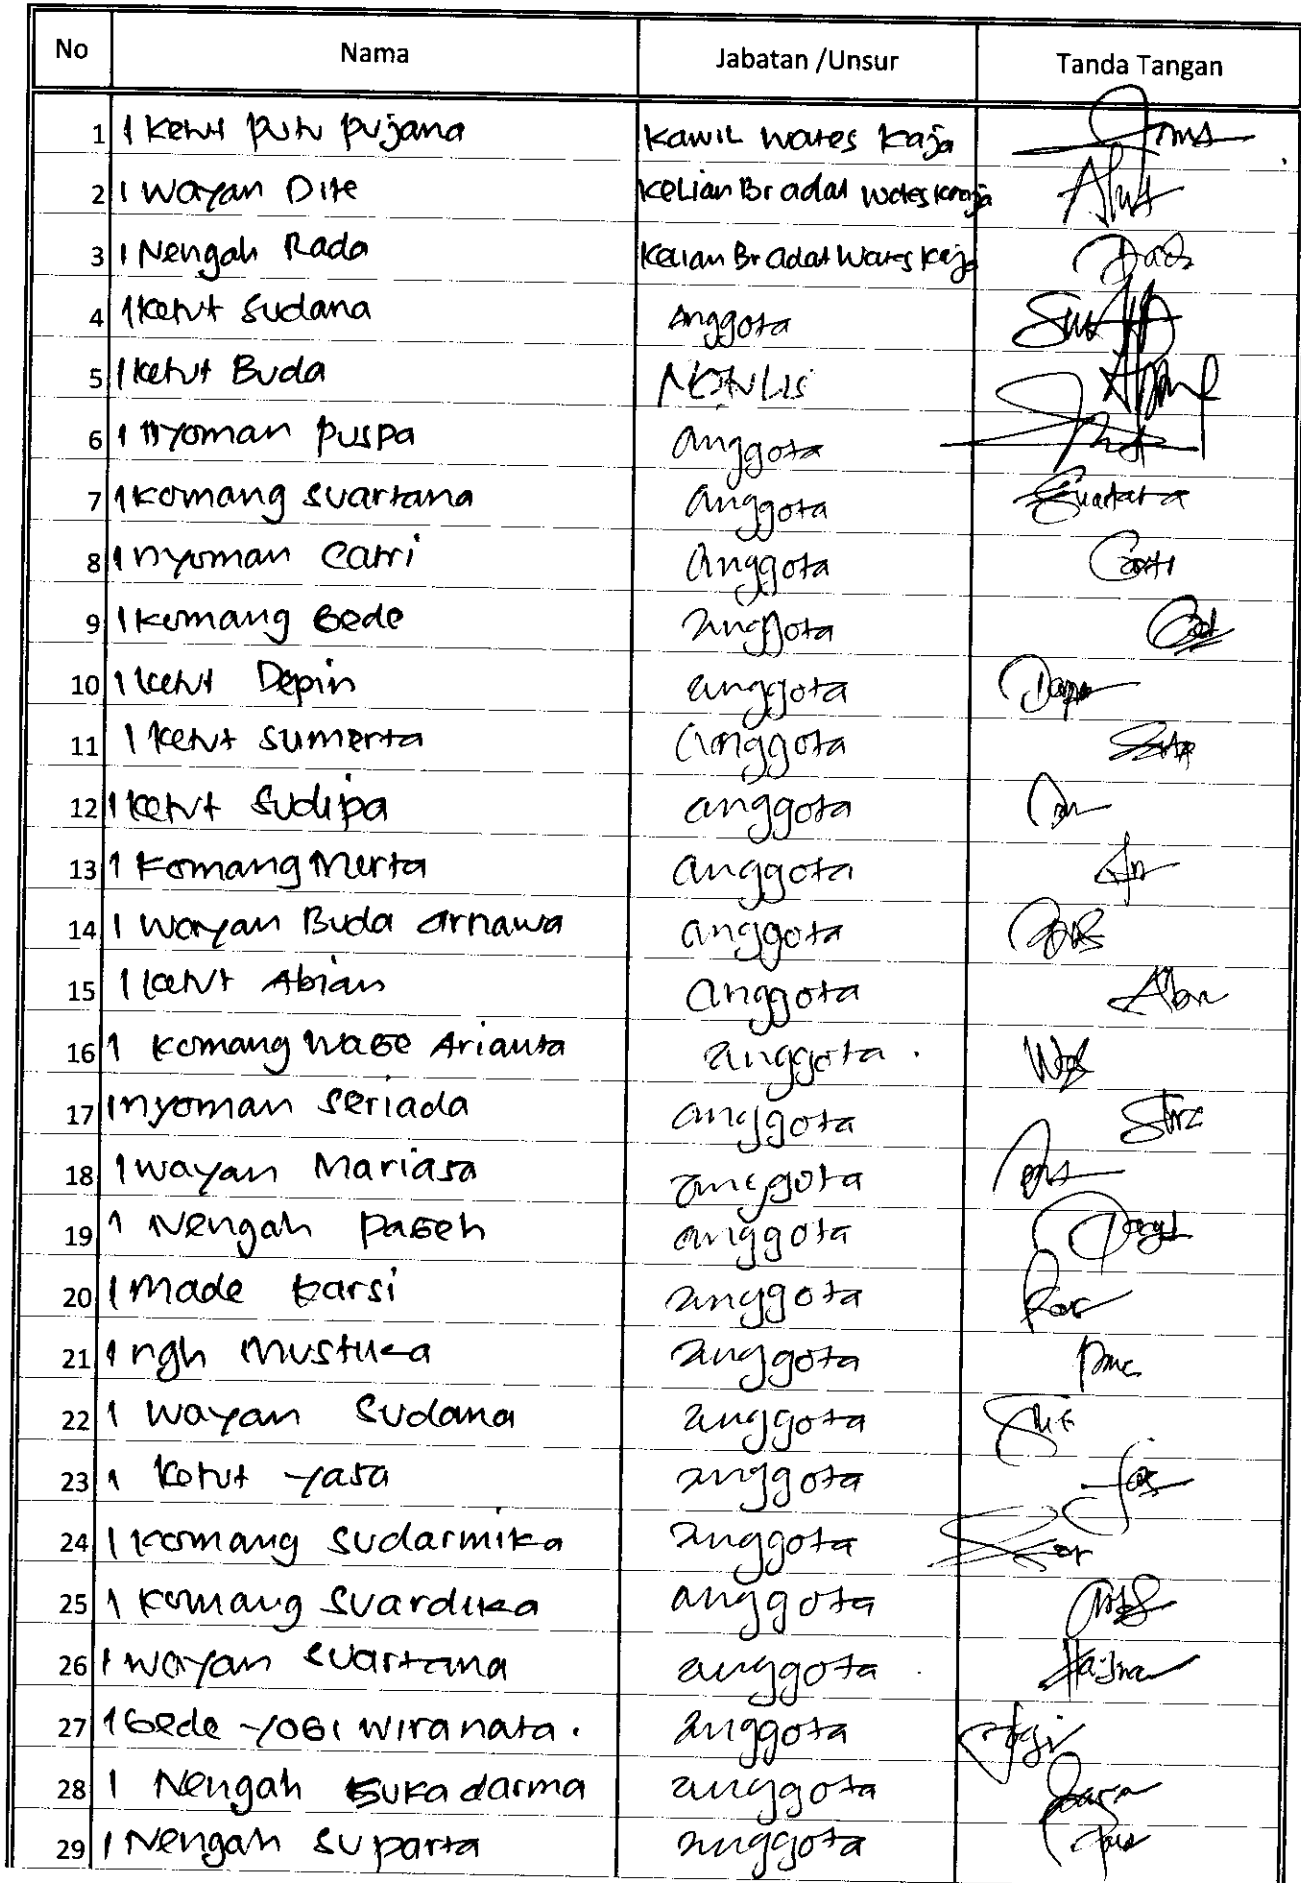 No Nama Jabatan /Unsur Tanda Tangan
1 I Ketut Putu Pujana Kawil Wates Kaja
2 I Wayan Dite Kelian Br adat Wates Kaja
3 I Nengah Rada Kelian Br adat Wates Kaja
4 I Ketut Sudana Anggota
5 I Ketut Buda Notulis
6 I Nyoman Puspa anggota
7 I Komang Suartana anggota Suartana
8 I nyoman Catri anggota
9 I Komang Gede anggota
10 I Ketut Depin anggota
11 I Ketut Sumerta anggota
12 I Ketut Sudipa anggota
13 I Komang Merta anggota
14 I Wayan Buda arnawa anggota
15 I Ketut Abian anggota
16 I Komang Wage Arianta anggota .
17 I nyoman Seriada anggota
18 I wayan Mariasa anggota
19 I Nengah Pageh anggota
20 I Made Karsi anggota
21 I ngh Mustika anggota
22 I Wayan Sudana anggota
23 I Ketut Yasa anggota
24 I Komang Sudarmika anggota
25 I Komang Suardika anggota
26 I Wayan Suartana anggota
27 I Gede Yogi Wiranata . anggota
28 I Nengah Sukadarma anggota
29 I Nengah Suparta anggota